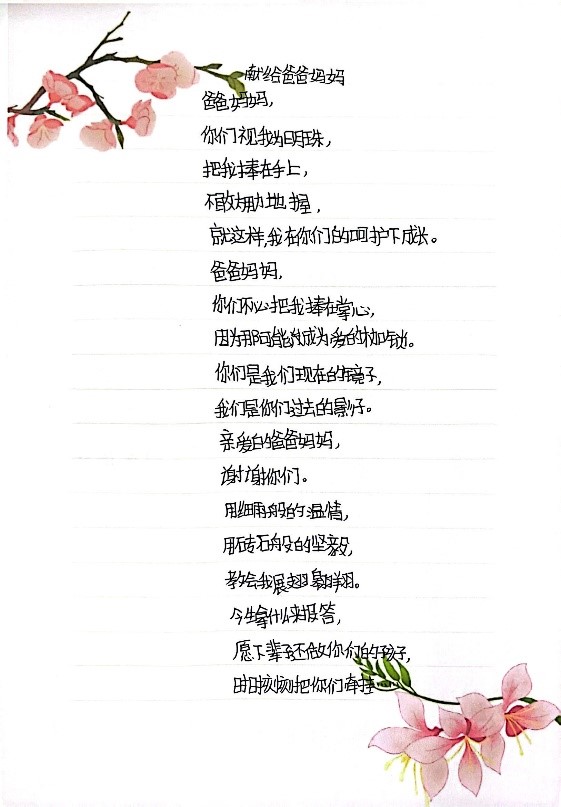 献给爸爸妈妈
爸爸妈妈，
你们视我为明珠，
把我捧在手上，
不敢大力地握，
就这样，我在你们的呵护下成长。
爸爸妈妈，
你们不必把我捧在掌心，
因为那可能成为爱的枷锁。
你们是我们现在的镜子，
我们是你们过去的影子。
亲爱的爸爸妈妈，
谢谢你们。
用细雨般的温情，
用砖石般的坚毅，
教会我展翅翱翔。
今生拿什么来报答，
愿下辈子还做你们的孩子，
时时刻刻把你们牵挂……